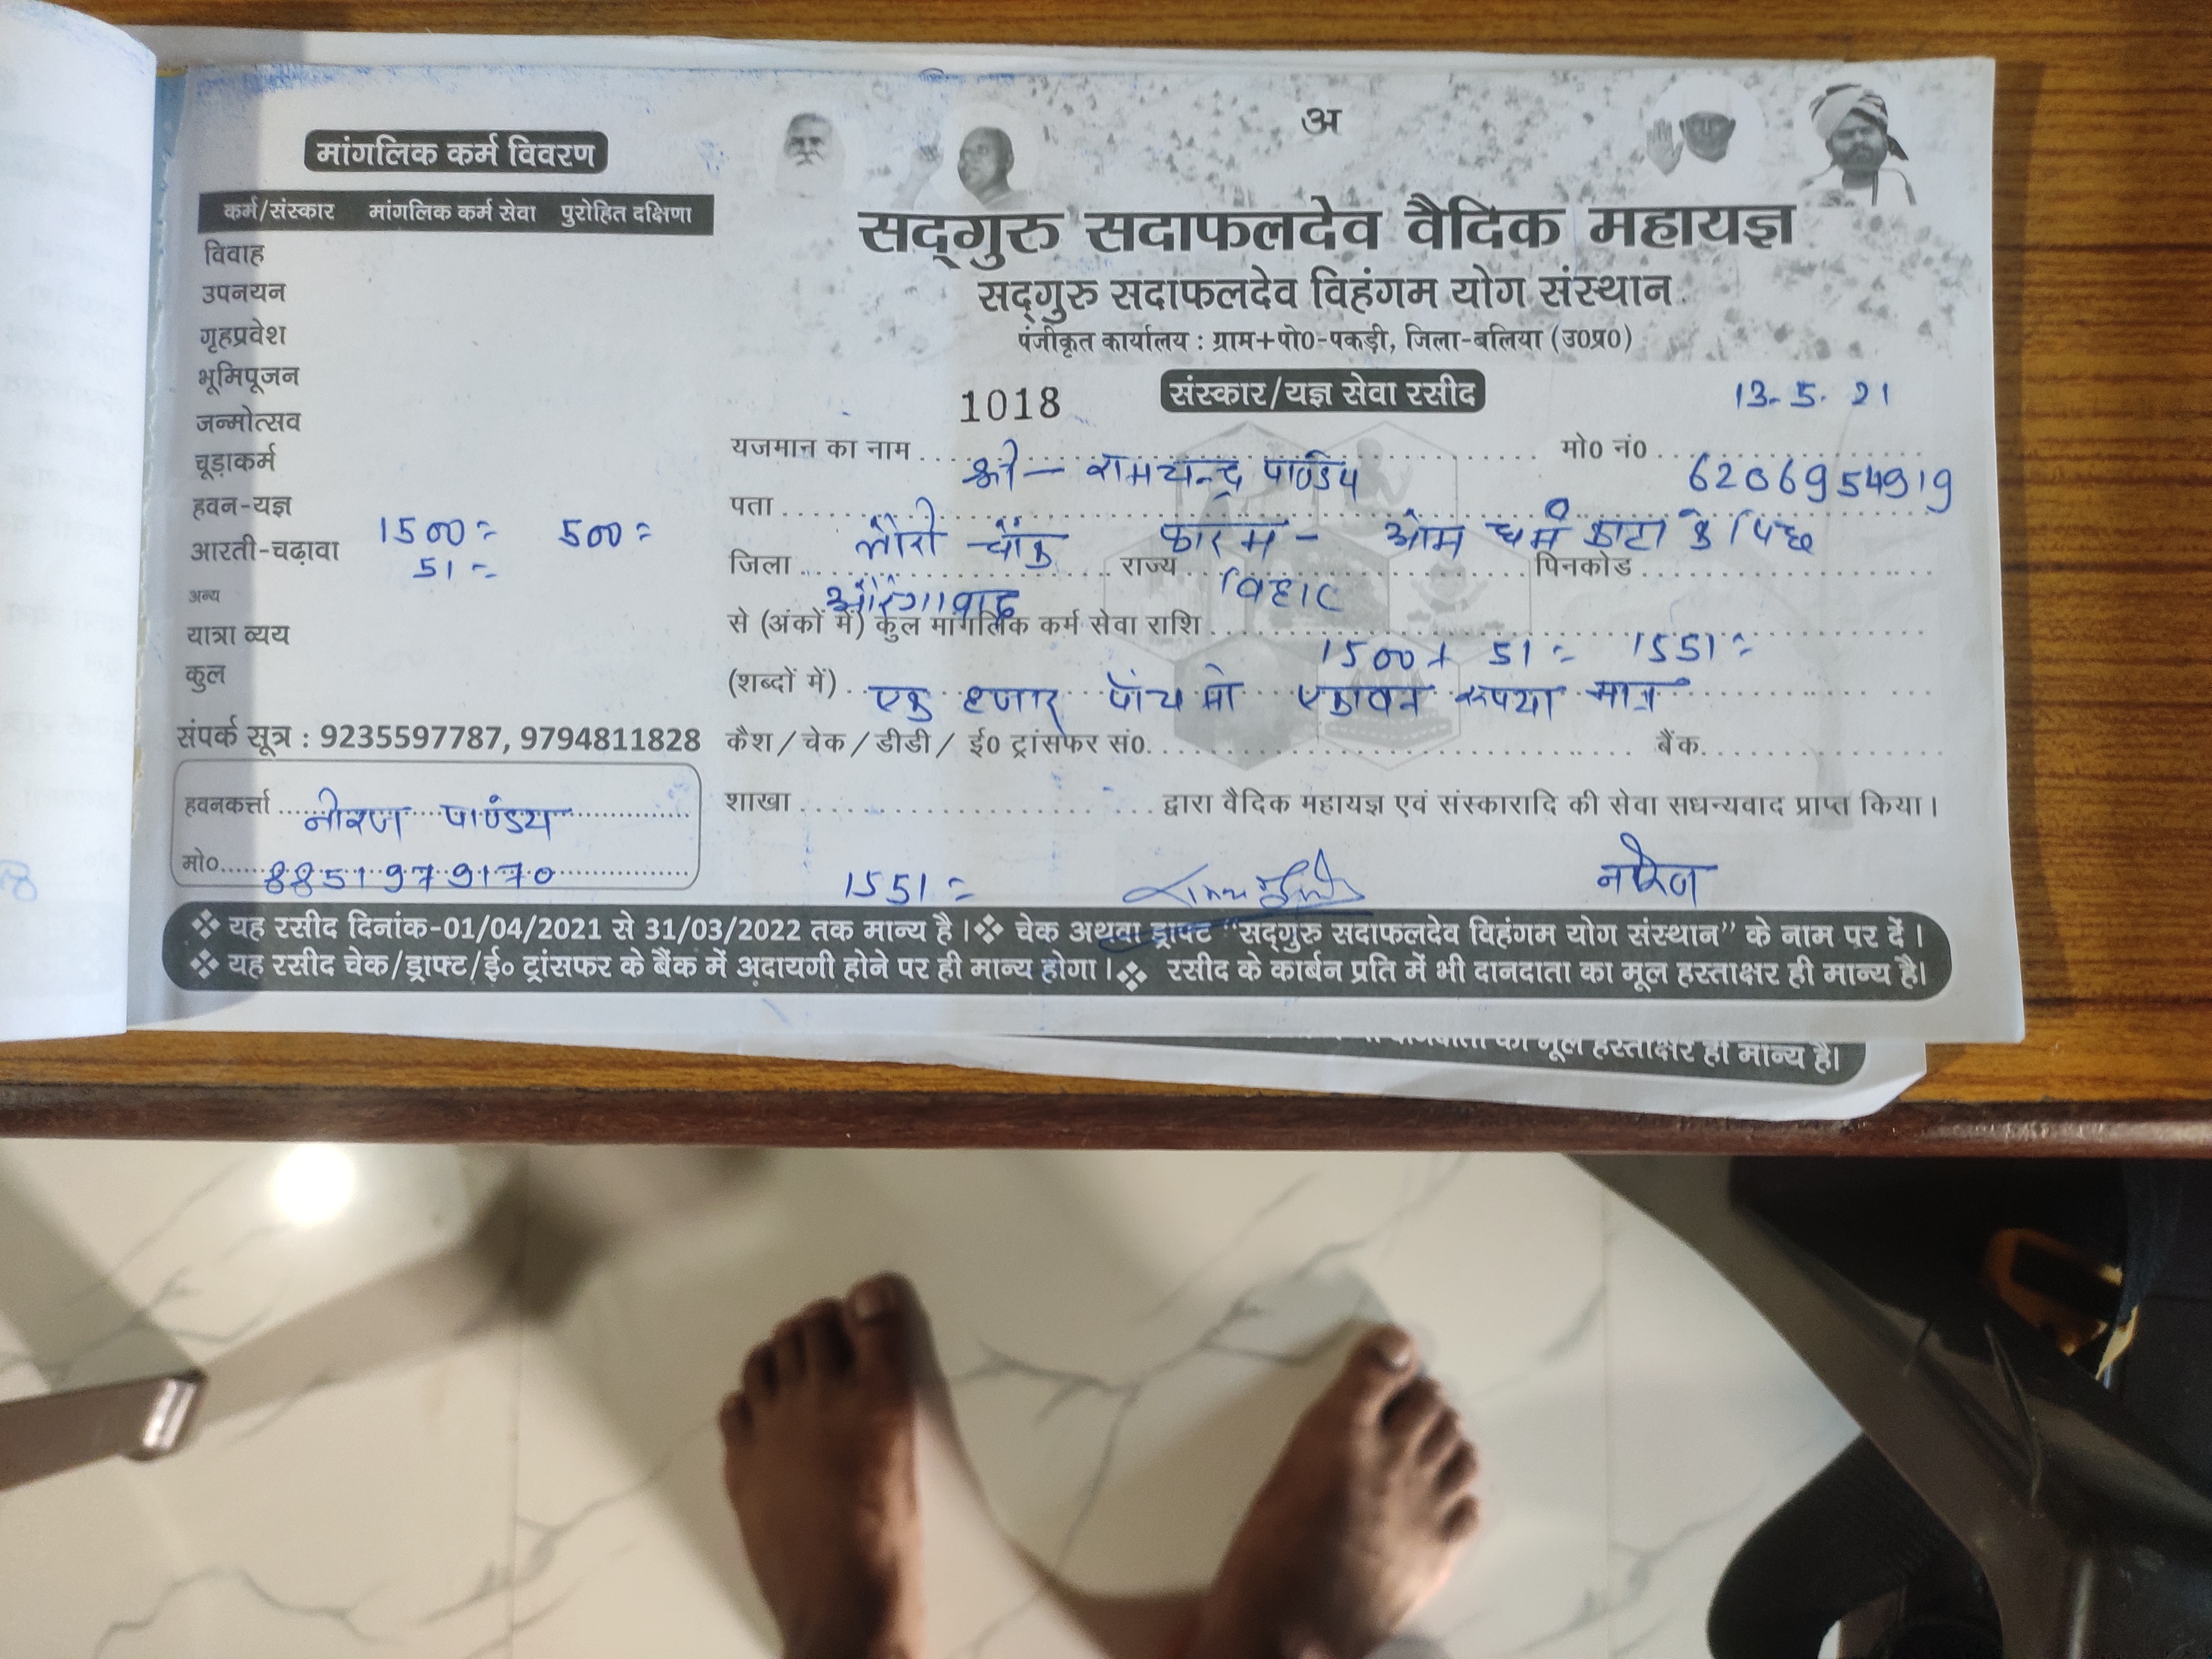 अ
मांगलिक कर्म विवरण
कर्म/संस्कार मांगलिक कर्म सेवा पुरोहित दक्षिणा
विवाह
उपनयन
गृहप्रवेश
भूमिपूजन
जन्मोत्सव
चूड़ाकर्म
हवन-यज्ञ 1500= 500=
आरती-चढ़ावा 51=
अन्य
यात्रा व्यय
कुल
संपर्क सूत्र : 9235597787, 9794811828
हवनकर्त्ता नीरज पाण्डेय
मो० 8851979170
सद्गुरु सदाफलदेव वैदिक महायज्ञ
सद्गुरु सदाफलदेव विहंगम योग संस्थान
पंजीकृत कार्यालय : ग्राम+पो०-पकड़ी, जिला-बलिया (उ०प्र०)
1018 संस्कार/यज्ञ सेवा रसीद 13.5.21
यजमान का नाम श्री - रामचन्द्र पाण्डेय मो० नं० 6206954919
पता चौक फारम - ओम धर्म काटा के पिछे
जिला औरंगाबाद राज्य बिहार पिनकोड
से (अंकों में) कुल मांगलिक कर्म सेवा राशि 1500+ 51= 1551=
(शब्दों में) एक हजार पाँच सो एकावन रूपया मात्र
कैश/चेक/डीडी/ ई० ट्रांसफर सं० बैंक
शाखा द्वारा वैदिक महायज्ञ एवं संस्कारादि की सेवा सधन्यवाद प्राप्त किया।
1551= नीरज
❖ यह रसीद दिनांक-01/04/2021 से 31/03/2022 तक मान्य है।❖ चेक अथवा ड्राफ्ट "सद्गुरु सदाफलदेव विहंगम योग संस्थान" के नाम पर दें।
❖ यह रसीद चेक/ड्राफ्ट/ई० ट्रांसफर के बैंक में अदायगी होने पर ही मान्य होगा।❖ रसीद के कार्बन प्रति में भी दानदाता का मूल हस्ताक्षर ही मान्य है।
का मूल हस्ताक्षर ही मान्य है।